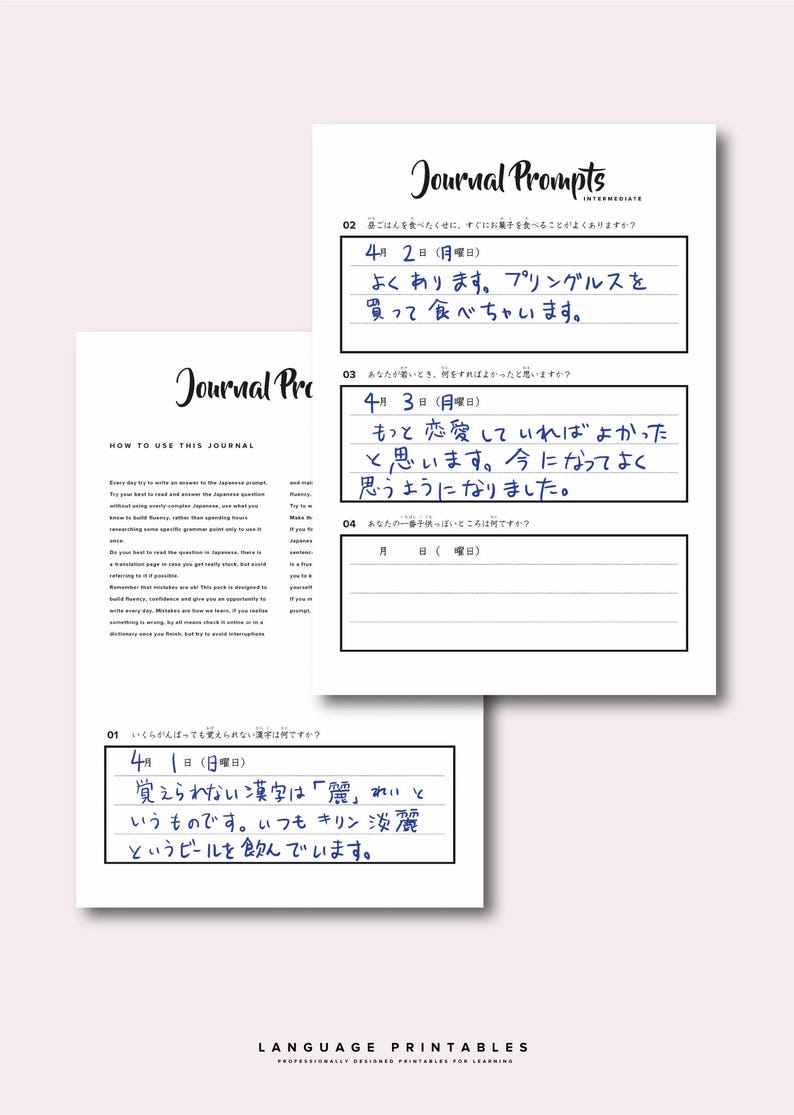 Journal Prompts
INTERMEDIATE
02 昼ごはんを食べたくせに、すぐにお菓子を食べることがよくありますか?
4月 2日 (月曜日)
よくあります。プリングルスを
買って食べちゃいます。
03 あなたが若いとき、何をすればよかったと思いますか?
4月 3日 (月曜日)
もっと恋愛していればよかった
と思います。今になってよく
思うようになりました。
04 あなたの一番子供っぽいところは何ですか?
月 日 ( 曜日)
Journal Pro
HOW TO USE THIS JOURNAL
Every day try to write an answer to the Japanese prompt.
Try your best to read and answer the Japanese question
without using overly-complex Japanese, use what you
know to build fluency, rather than spending hours
researching some specific grammar point only to use it
once.
Do your best to read the question in Japanese, there is
a translation page in case you get really stuck, but avoid
referring to it if possible.
Remember that mistakes are ok! This pack is designed to
build fluency, confidence and give you an opportunity to
write every day. Mistakes are how we learn, if you realise
something is wrong, by all means check it online or in a
dictionary once you finish, but try to avoid interruptions
and mai
fluency.
Try to w
Make th
If you fi
Japanes
sentenc
is a frus
you to k
yourself
If you m
prompt.
01 いくらがんばっても覚えられない漢字は何ですか?
4月 1日 (日曜日)
覚えられない漢字は「麗」れいと
いうものです。いつもキリン淡麗
というビールを飲んでいます。
LANGUAGE PRINTABLES
PROFESSIONALLY DESIGNED PRINTABLES FOR LEARNING